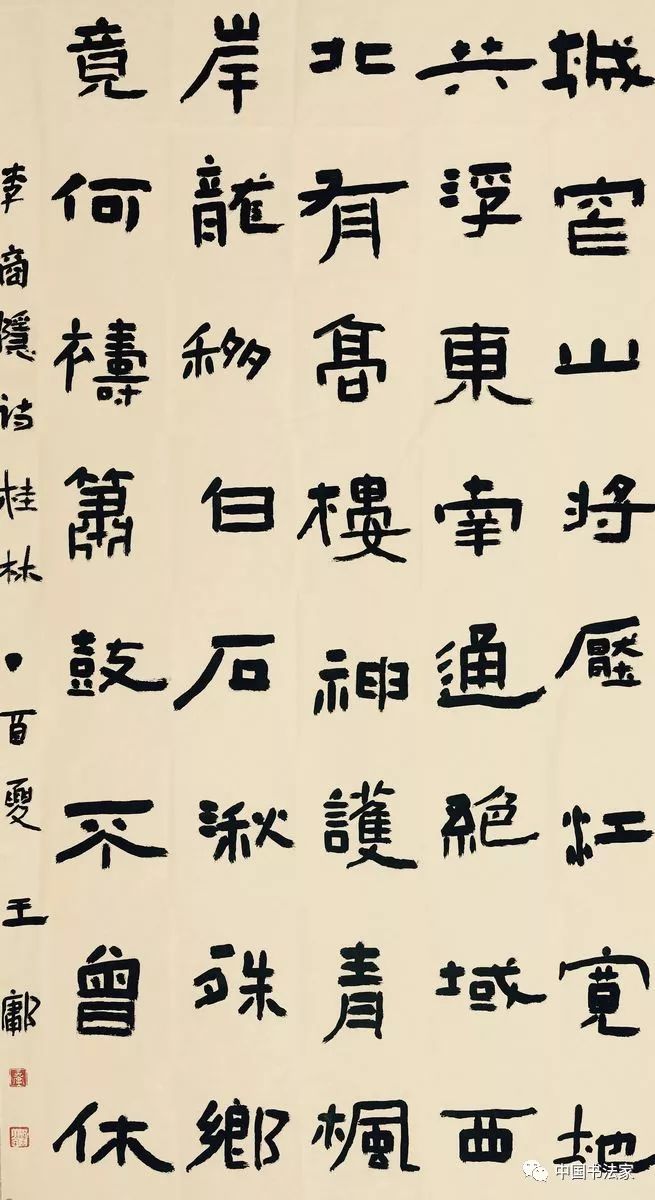 城窄山将壓江寬地
共浮東南通絕域西
北有髙樓神護青楓
岸龍移白石湫殊鄉
竟何禱簫鼓不曾休
李商隱诗桂林丁酉夏王鄘
中国书法家